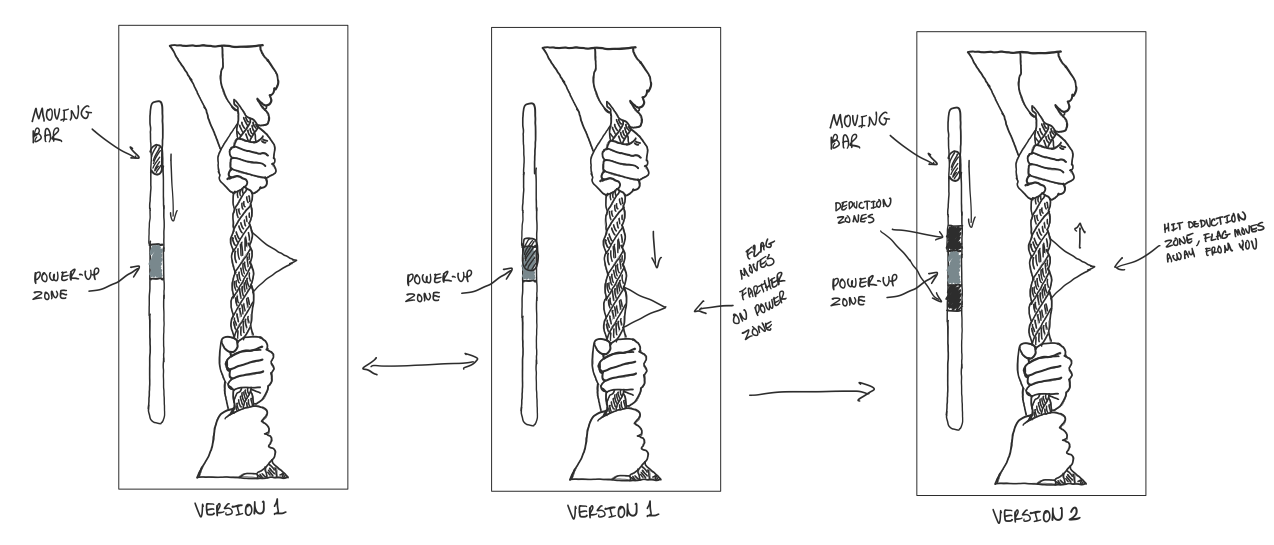 MOVING
BAR
POWER-UP
ZONE
VERSION 1
POWER-UP
ZONE
FLAG
MOVES
FARTHER
ON POWER
ZONE
VERSION 1
MOVING
BAR
DEDUCTION
ZONES
POWER-UP
ZONE
HIT DEDUCTION
ZONE, FLAG MOVES
AWAY FROM YOU
VERSION 2